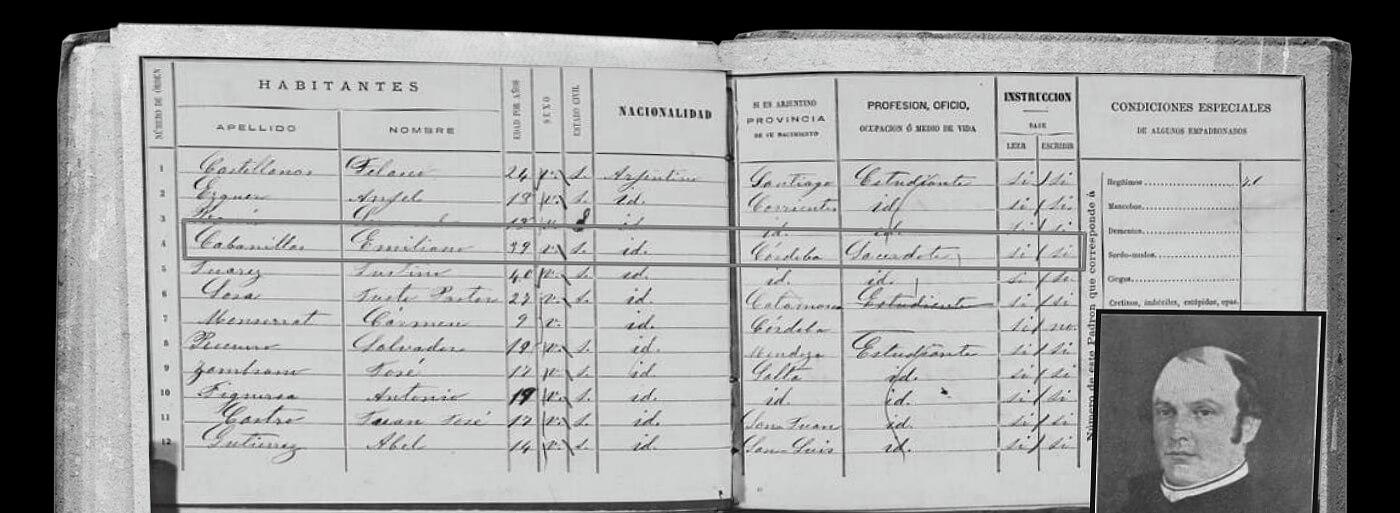 NÚMERO DE ÓRDEN
HABITANTES
APELLIDO NOMBRE
EDAD POR AÑOS
SEXO
ESTADO CIVIL
NACIONALIDAD
SI ES ARJENTINO
PROVINCIA
DE SU NACIMIENTO
PROFESION, OFICIO,
OCUPACION Ó MEDIO DE VIDA
INSTRUCCION
SABE
LEER ESCRIBIR
CONDICIONES ESPECIALES
DE ALGUNOS EMPADRONADOS
1 Castellanos 24 v. s. Argentino Santiago Estudiante si si
2 Angel v. s. id. Corrientes id si si
3 id. id. si si
4 Cabanillas Emiliano 39 v. s. id. Córdoba Sacerdote si si
5 Suarez Justino 40 v. s. id. id. id. si si
6 Sosa Justo Pastor 27 v. s. id. Catamarca Estudiante si si
7 Monserrat Cármen 9 v. id. Córdoba si no.
8 Salvador 19 v. s. id. Mendoza Estudiante si si
9 Zambrano José 17 v. s. id. Salta id. si si
10 Figueroa Antonio 19 v. s. id. id. id. si si
11 Castro Juan José 17 v. s. id. San Juan id. si si
12 Gutierrez Abel 14 v. s. id. San Luis id. si si
Número de este Padron, que corresponde á
Ilegítimos
Mancebos
Dementes
Sordo-mudos
Ciegos
Cretinos, imbéciles, estúpidos, opas.